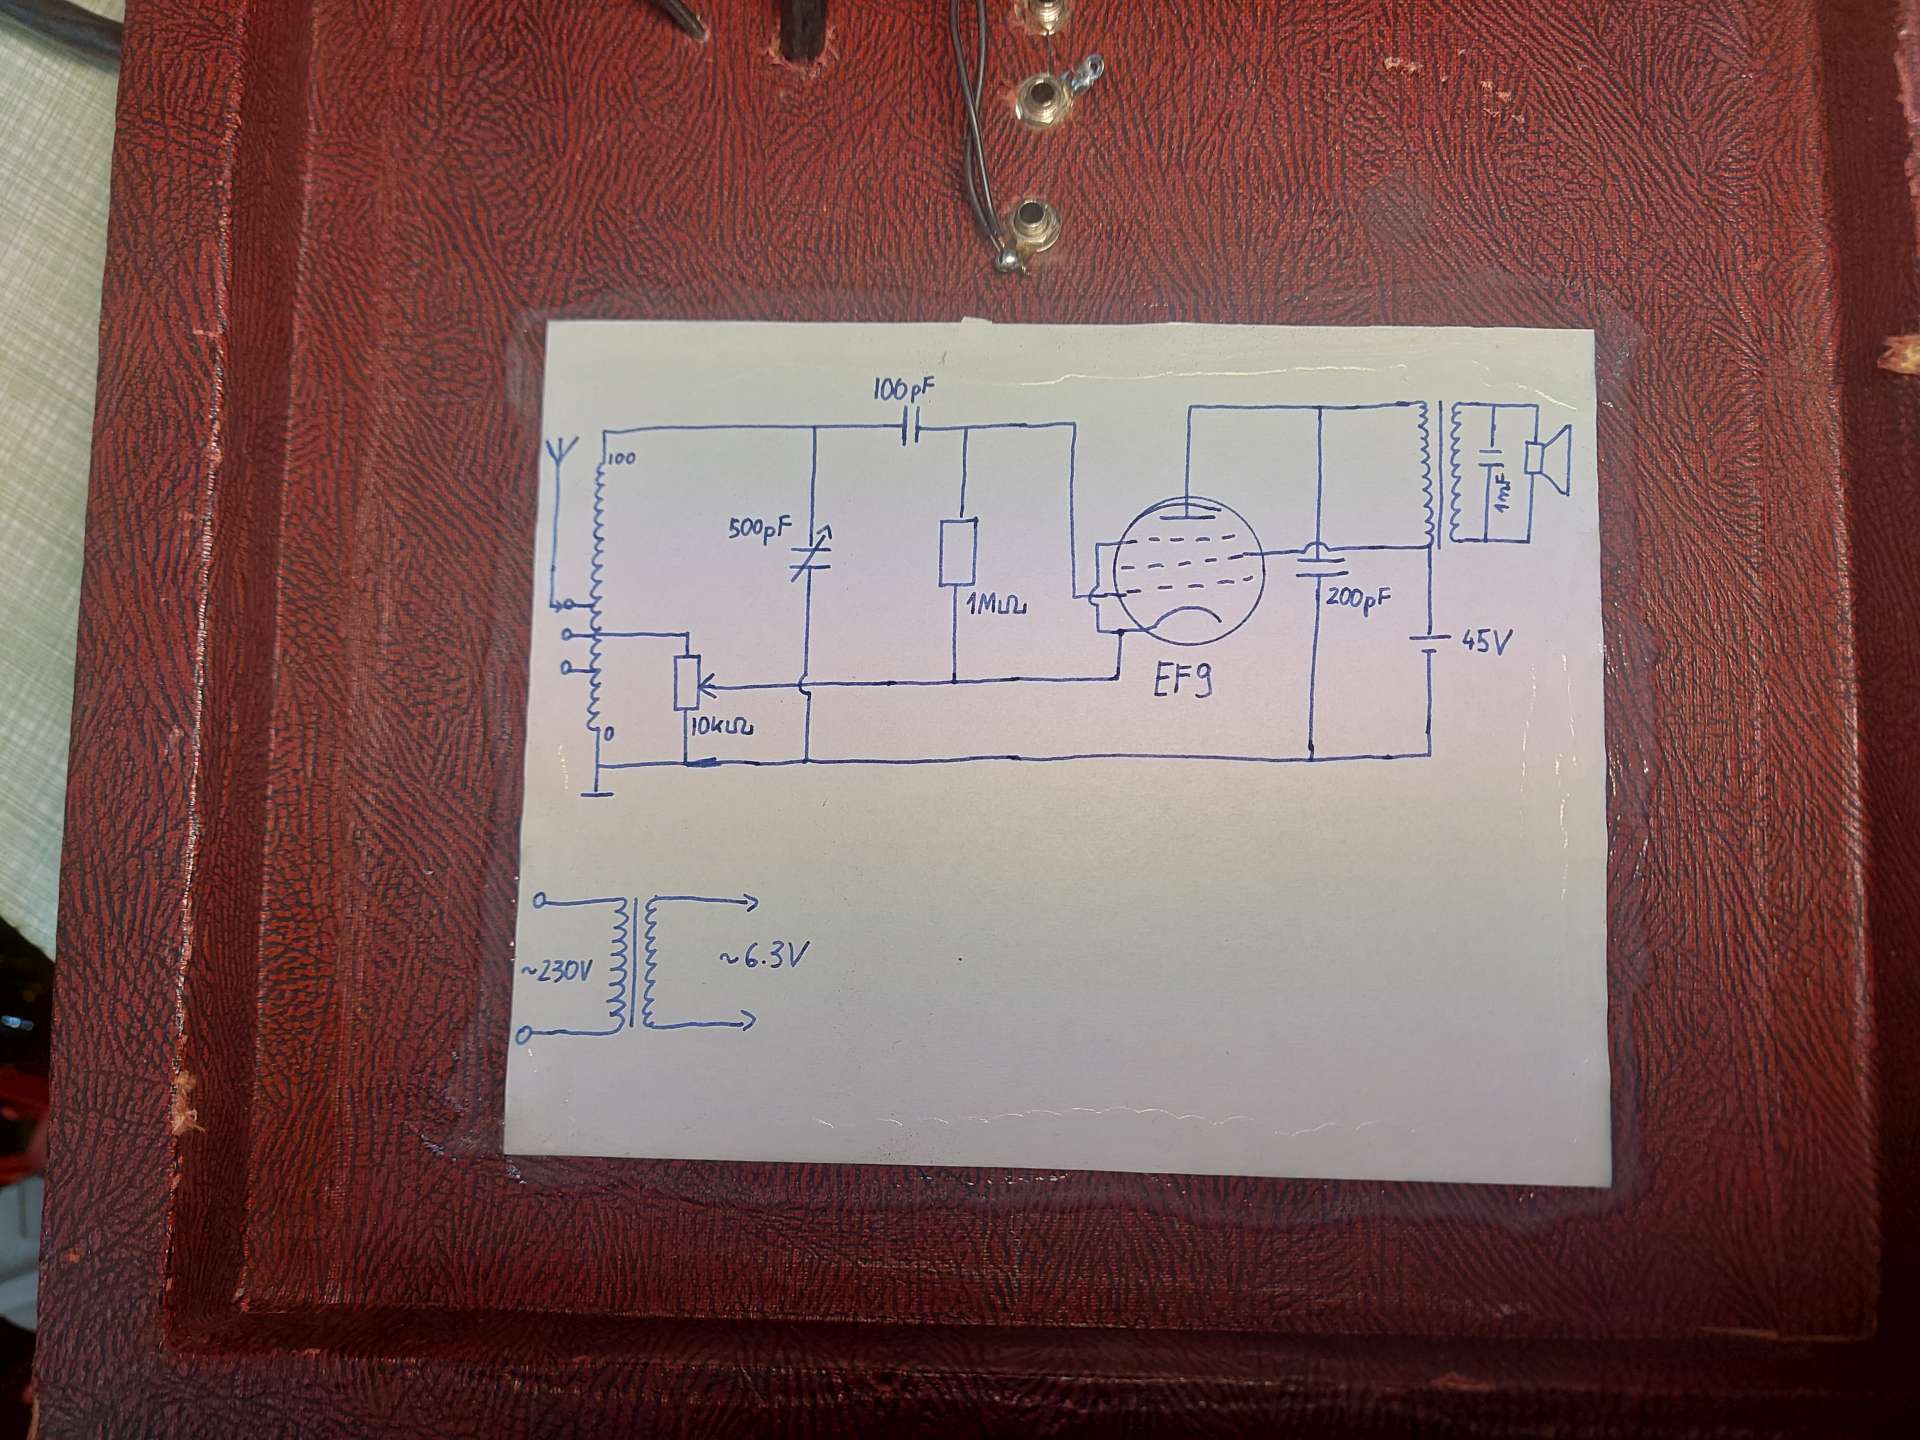 100pF
100
500pF
1MΩ
1mF
200pF
45V
EF9
10kΩ
0
~230V
~6.3V